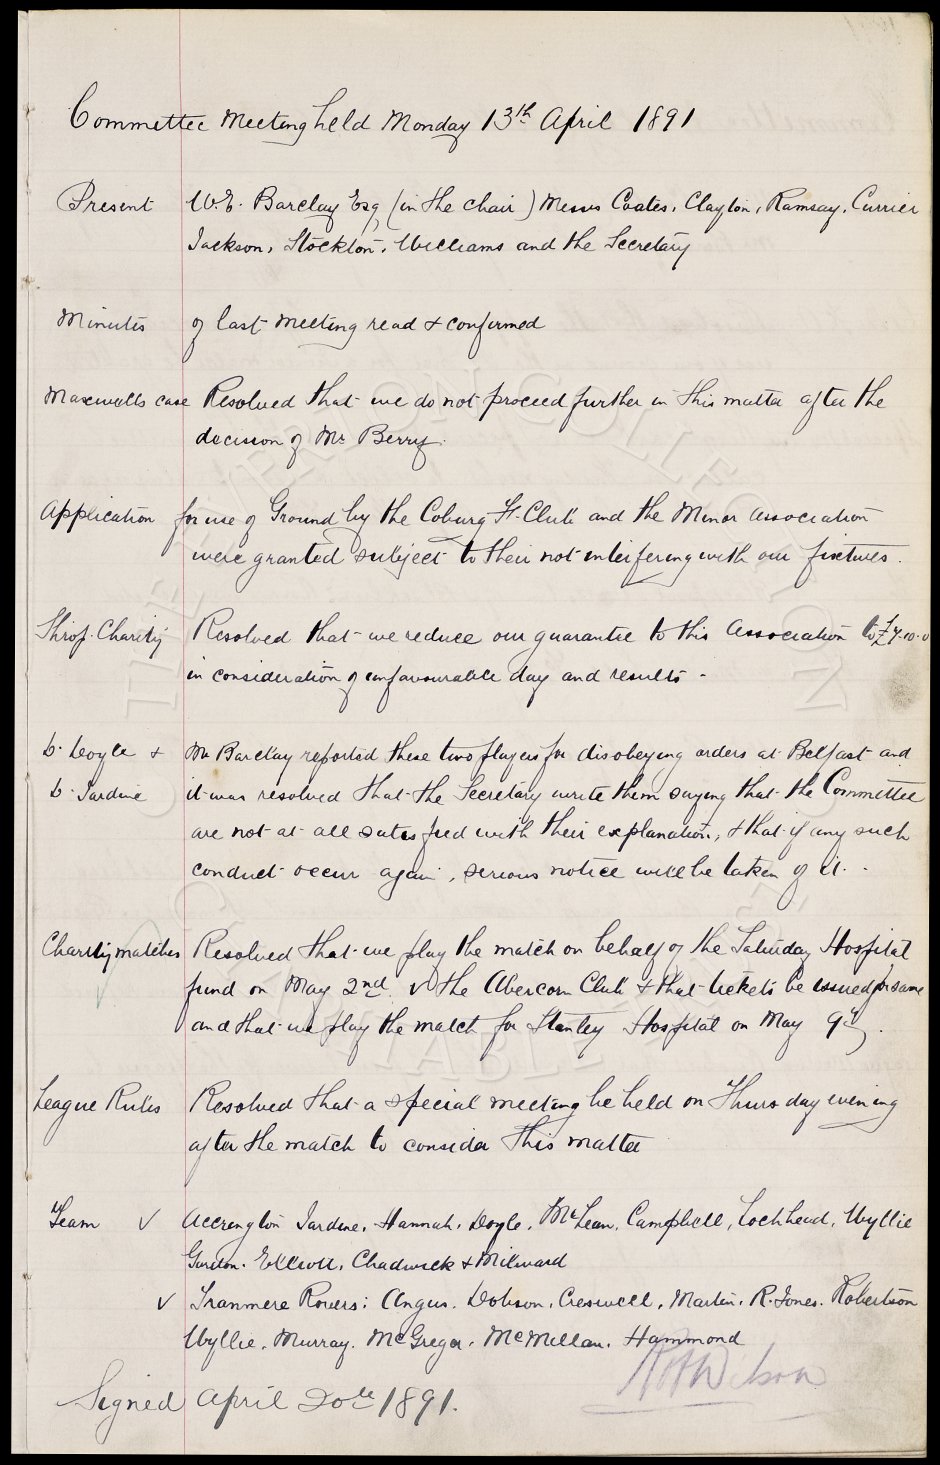 Committee Meeting held Monday 13th April 1891
Present W.E. Barclay Esq (in the chair) Messrs Coates, Clayton, Ramsay, Currier
Jackson, Stockton, Williams and the Secretary
Minutes of last meeting read & confirmed
Maxwells case Resolved that we do not proceed further in this matter after the
decision of Mr Berry.
Application for use of Ground by the Coburg F. Club and the Minor Association
were granted subject to their not interfering with our fixtures.
Shrop. Charity Resolved that we reduce our guarantee to this Association to £7.10.0
in consideration of unfavourable day and results -
D. Doyle & Mr Barclay reported these two players for disobeying orders at Belfast and
D. Jardine it was resolved that the Secretary write them saying that the Committee
are not at all satisfied with their explanation, & that if any such
conduct occur again, serious notice will be taken of it. -
Charity matches Resolved that we play the match on behalf of the Saturday Hospital
fund on May 2nd v the Abercorn Club & that tickets be issued for same
and that we play the match for Stanley Hospital on May 9th.
League Rules Resolved that a special meeting be held on Thursday evening
after the match to consider this matter
Team ✓ Accrington Jardine, Hannah, Doyle, McLean, Campbell, Lochhead, Wyllie
Gordon, Elliott, Chadwick & Milward
✓ Tranmere Rovers: Angus, Dobson, Creswell, Martin, R. Jones, Robertson
Wyllie, Murray, McGregor, McMillan, Hammond
Signed April 20th 1891.
THE EVERTON COLLECTION
CHARITABLE TRUST